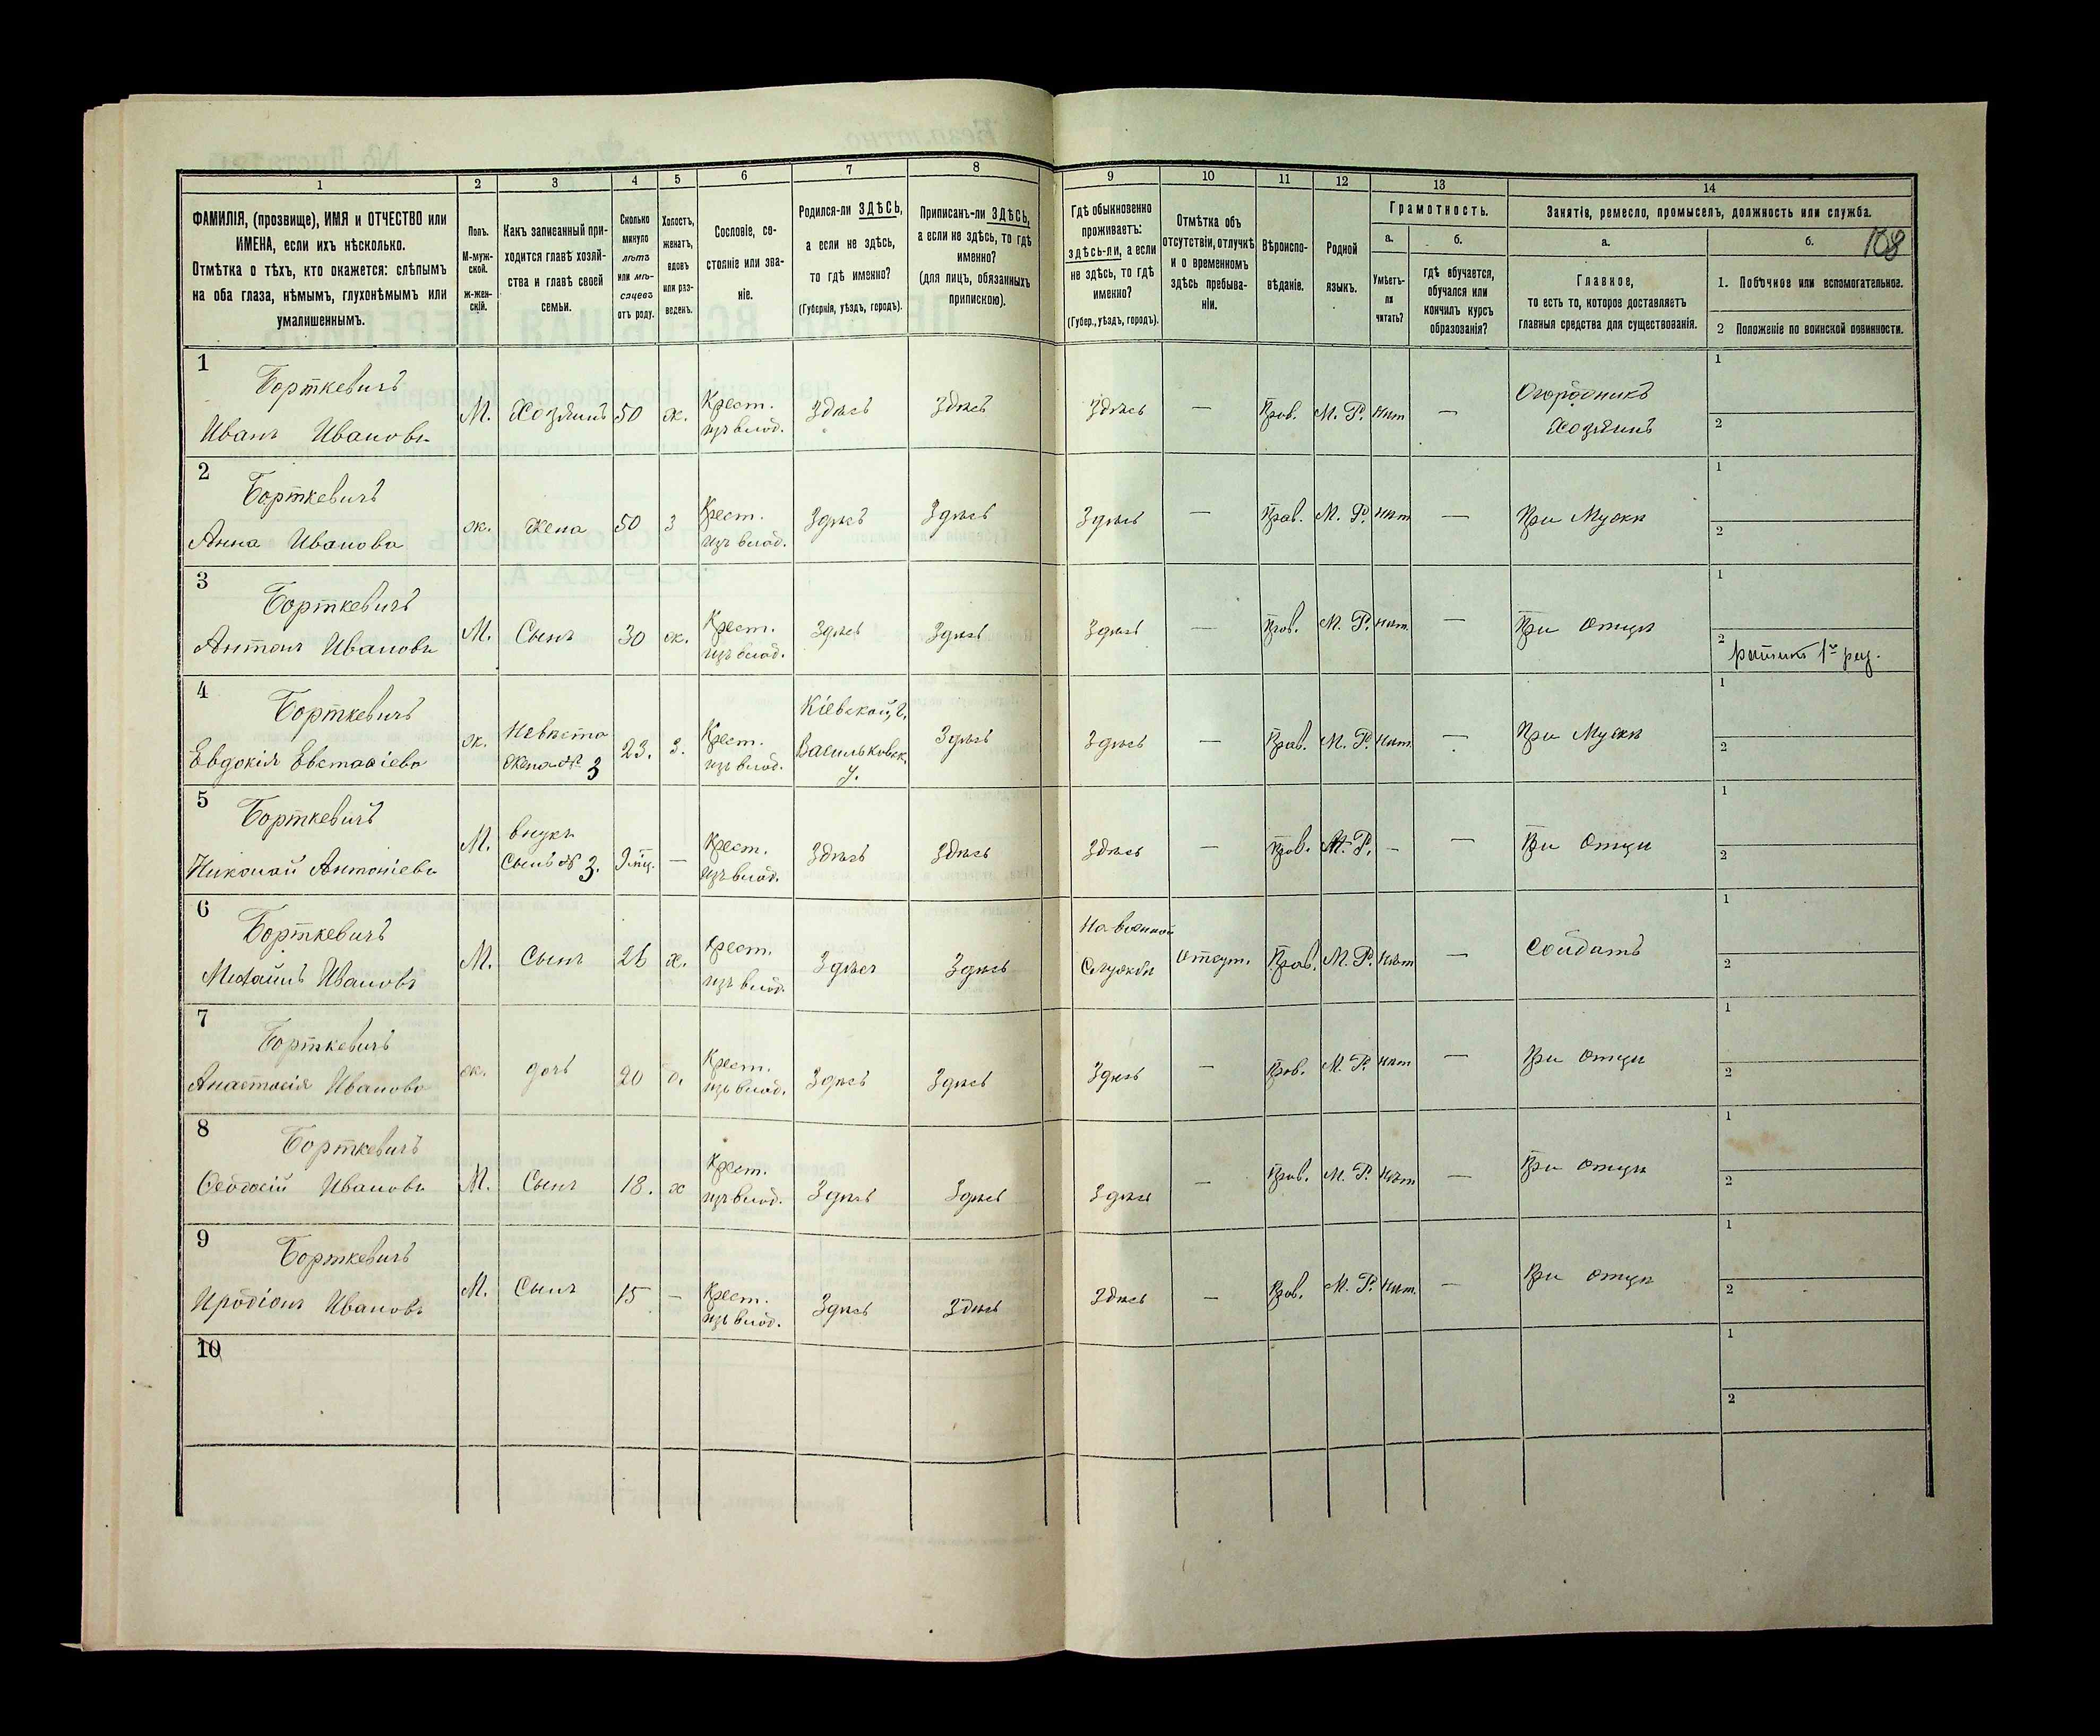 108
1 2 3 4 5 6 7 8 9 10 11 12 13 14
ФАМИЛІЯ, (прозвище), ИМЯ и ОТЧЕСТВО или
ИМЕНА, если ихъ нѣсколько.
Отмѣтка о тѣхъ, кто окажется: слѣпымъ
на оба глаза, нѣмымъ, глухонѣмымъ или
умалишеннымъ.
Полъ.
М-муж-
ской.
ж-жен-
скій.
Какъ записанный при-
ходится главѣ хозяй-
ства и главѣ своей
семьи.
Сколько
минуло
лѣтъ
или мѣ-
сяцевъ
отъ роду.
Холостъ,
женатъ,
вдовъ
или раз-
веденъ.
Сословіе, со-
стояніе или зва-
ніе.
Родился-ли ЗДѢСЬ,
а если не здѣсь,
то гдѣ именно?
(Губернія, уѣздъ, городъ).
Приписанъ-ли ЗДѢСЬ,
а если не здѣсь, то гдѣ
именно?
(для лицъ, обязанныхъ
припискою).
Гдѣ обыкновенно
проживаетъ:
здѣсь-ли, а если
не здѣсь, то гдѣ
именно?
(Губер., уѣздъ, городъ).
Отмѣтка объ
отсутствіи, отлучкѣ
и о временномъ
здѣсь пребыва-
ніи.
Вѣроиспо-
вѣданіе.
Родной
языкъ.
Грамотность.
а.
Умѣетъ-
ли
читать?
б.
гдѣ обучается,
обучался или
кончилъ курсъ
образованія?
Занятіе, ремесло, промыселъ, должность или служба.
а.
Главное,
то есть то, которое доставляетъ
главныя средства для существованія.
б.
1. Побочное или вспомогательное.
2 Положеніе по воинской повинности.
1
Борткевичъ
Иванъ Ивановъ
М. Хозяинъ 50 ж. Крест.
изъ влад.
Здѣсь Здѣсь Здѣсь — Прав. М. Р. нѣт —
Огородникъ
Хозяинъ
1
2
2
Борткевичъ
Анна Иванова
ж. Жена 50 з Крест.
изъ влад.
Здѣсь Здѣсь Здѣсь — Прав. М. Р. нѣт — При Мужѣ
1
2
3
Борткевичъ
Антонъ Ивановъ
М. Сынъ 30 ж. Крест.
изъ влад.
Здѣсь Здѣсь Здѣсь — Прав. М. Р. нѣт. — При отцѣ
1
2 ратникъ 1го раз.
4
Борткевичъ
Евдокія Евстафіева
ж. Невѣста
Жена № 3
23. з. Крест.
изъ влад.
Кіевской, г.
Васильковск.
у.
Здѣсь Здѣсь — Прав. М. Р. нѣт. — При Мужѣ
1
2
5
Борткевичъ
Николай Антоніевъ
М. внукъ
Сынъ № 3.
9 мц. — Крест.
изъ влад.
Здѣсь Здѣсь Здѣсь — Прав. М. Р. — — При отцѣ
1
2
6
Борткевичъ
Михаилъ Ивановъ
М. Сынъ 26 х. Крест.
изъ влад.
Здѣсь Здѣсь На военной
Службѣ
отсут. Прав. М. Р. нѣт — Солдатъ
1
2
7
Борткевичъ
Анастасія Иванова
ж. дочь 20 Крест.
изъ влад.
Здѣсь Здѣсь Здѣсь — Прав. М. Р. нѣт — При отцѣ
1
2
8
Борткевичъ
Ѳеодосій Ивановъ
М. Сынъ 18. х Крест.
изъ влад.
Здѣсь Здѣсь Здѣсь — Прав. М. Р. нѣт — При отцѣ
1
2
9
Борткевичъ
Иродіонъ Ивановъ
М. Сынъ 15 — Крест.
изъ влад.
Здѣсь Здѣсь Здѣсь — Прав. М. Р. нѣт. — При отцѣ
1
2
10
1
2